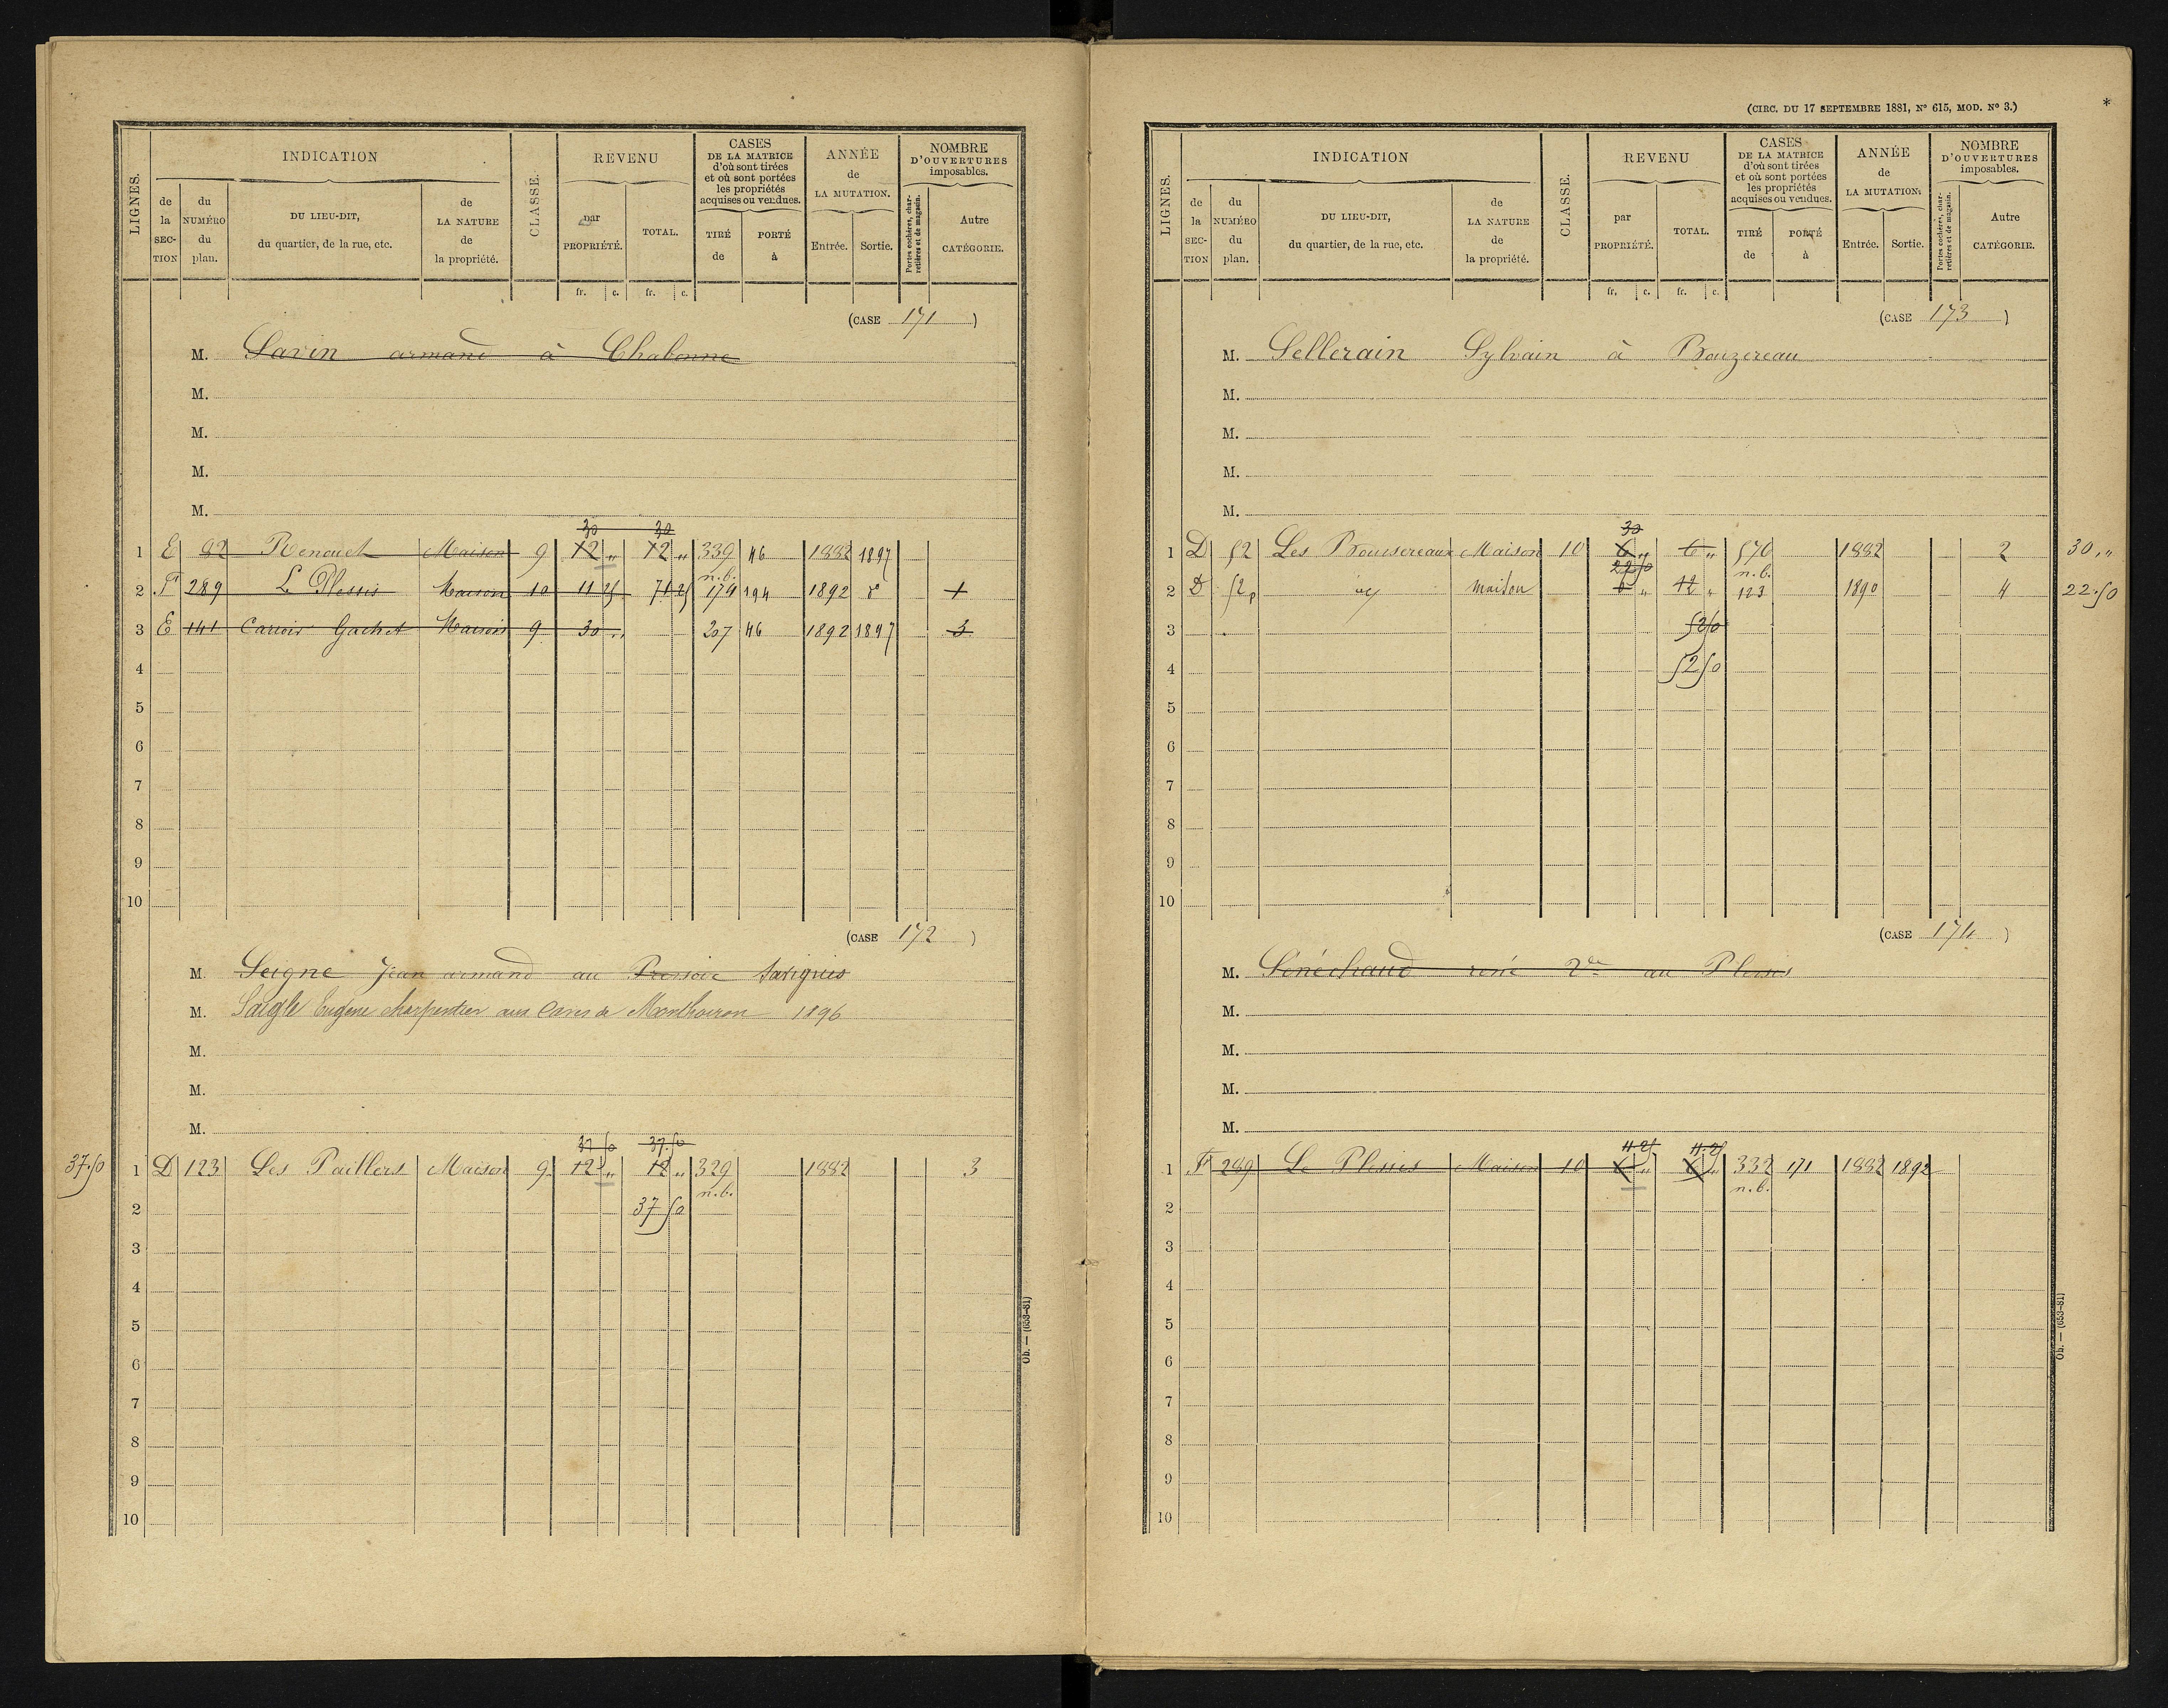 LIGNES.
INDICATION
de la SECTION
du NUMÉRO du plan.
DU LIEU-DIT, du quartier, de la rue, etc.
de LA NATURE de la propriété.
CLASSE.
REVENU
par PROPRIÉTÉ.
TOTAL.
CASES DE LA MATRICE d'où sont tirées et où sont portées les propriétés acquises ou vendues.
TIRÉ de
PORTÉ à
ANNÉE de LA MUTATION.
Entrée. Sortie.
NOMBRE D'OUVERTURES imposables.
Portes cochères, charretières et de magasin.
Autre CATÉGORIE.
fr. c. fr. c.
(CASE 171)
M. Savin armand à Chabonne
M.
M.
M.
M.
30 30
1 E 82 Renouet Maison 9 12 " 12 " 339 46 1882 1897
n.b.
2 F 289 Le Plessis Maison 10 11 25 71 25 174 194 1892 do 1
3 E 141 Carroir Gachet Maison 9 30 " 207 46 1892 1897 3
4
5
6
7
8
9
10
(CASE 172)
M. Seigne Jean armand au Pressoir Savignes
M. Saigle Eugène charpentier aux Caves de Monthoiron 1896
M.
M.
M.
37.50 37.50
37.50 1 D 123 Les Paillers Maison 9 12 " 12 " 329 1882 3
n.b.
2 37 50
3
4
5
6
7
8
9
10
Ob. — (653-81)
(CIRC. DU 17 SEPTEMBRE 1881, No 615, MOD. No 3.)
*
LIGNES.
INDICATION
de la SECTION
du NUMÉRO du plan.
DU LIEU-DIT, du quartier, de la rue, etc.
de LA NATURE de la propriété.
CLASSE.
REVENU
par PROPRIÉTÉ.
TOTAL.
CASES DE LA MATRICE d'où sont tirées et où sont portées les propriétés acquises ou vendues.
TIRÉ de
PORTÉ à
ANNÉE de LA MUTATION.
Entrée. Sortie.
NOMBRE D'OUVERTURES imposables.
Portes cochères, charretières et de magasin.
Autre CATÉGORIE.
fr. c. fr. c.
(CASE 173)
M. Sellerain Sylvain à Bouzereau
M.
M.
M.
M.
30
1 D 52 Les Bousereaux Maison 10 6 " 6 " 570 1882 2 30,"
22.50 n.b.
2 D 52p maison 6 " 12 " 123 1890 4 22.50
3 52 50
4 52 50
5
6
7
8
9
10
(CASE 174)
M. Sénéchaud rené Vve au Plessis
M.
M.
M.
M.
11.25 11.25
1 F 289 Le Plessis Maison 10 6 " 6 " 332 171 1882 1892
n.b.
2
3
4
5
6
7
8
9
10
Ob. — (653-81)